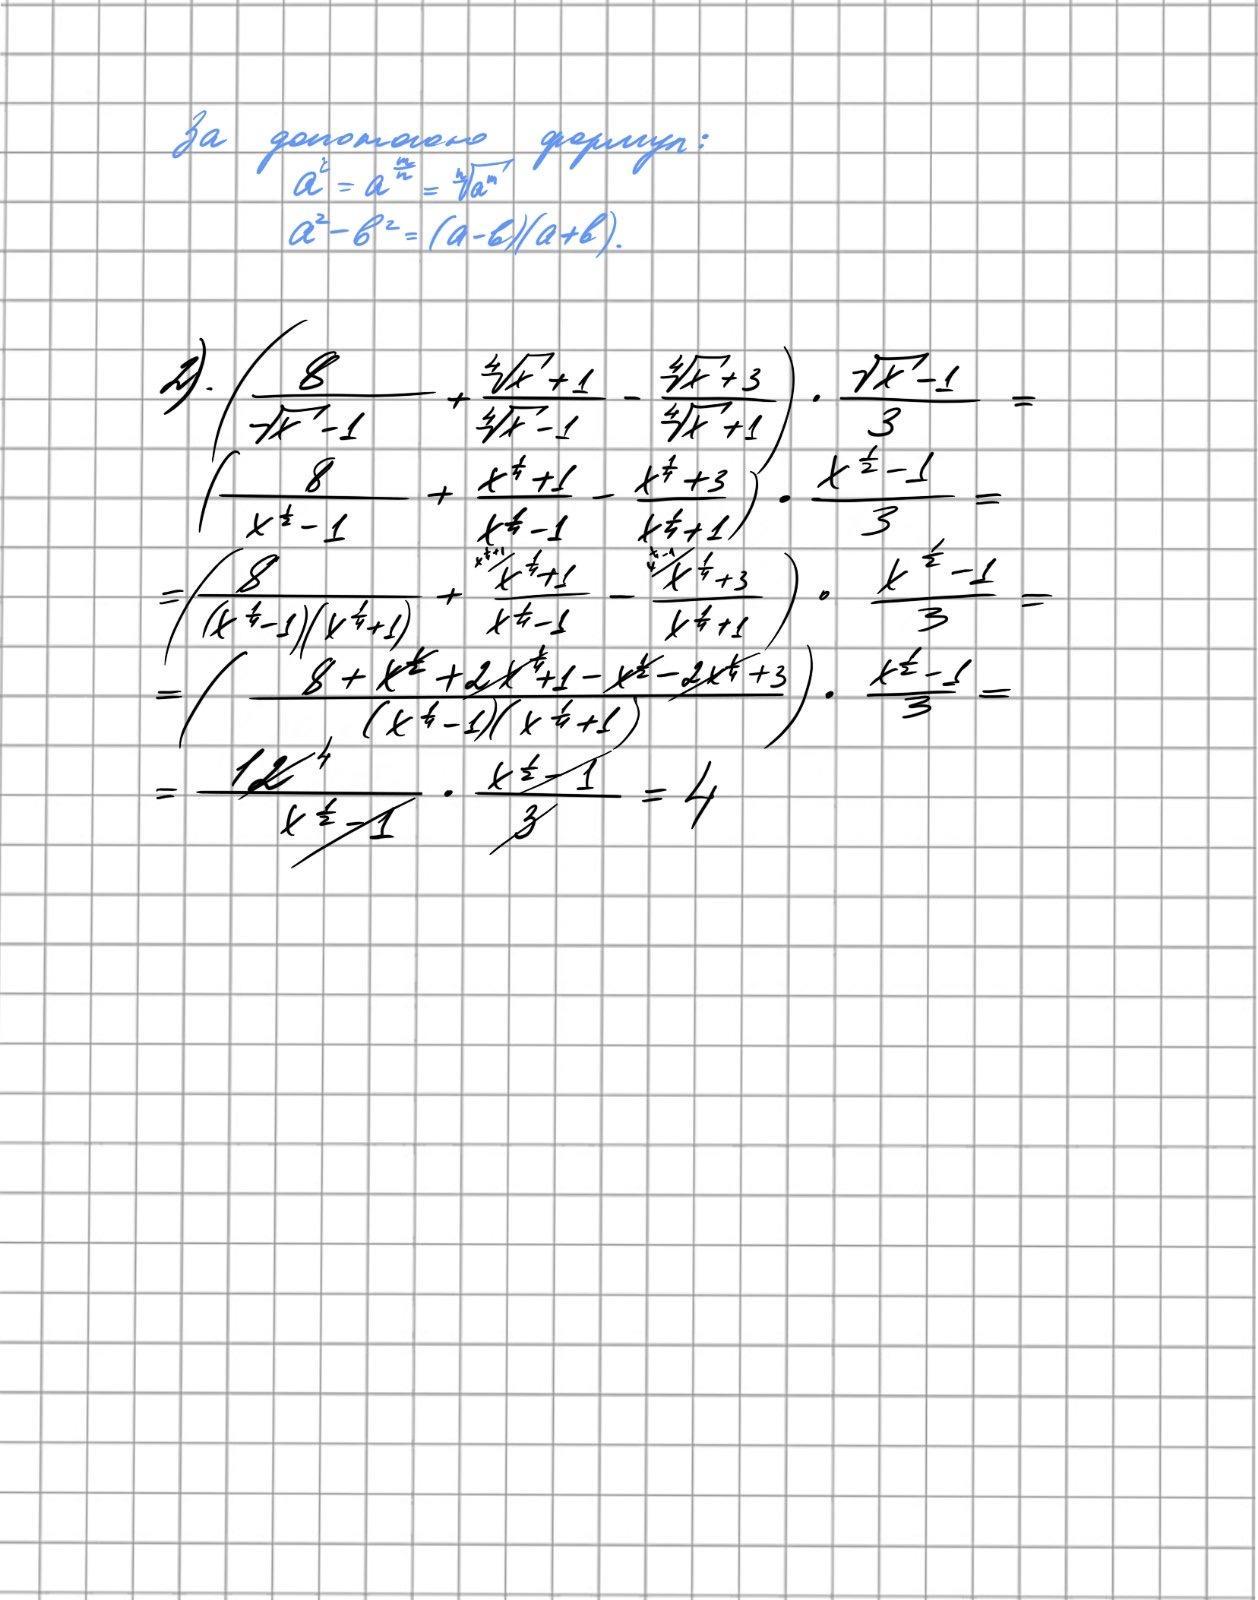 За допомогою формул:
a^i = a^(m/n) = ⁿ√a^m
a² - b² = (a-b)(a+b).
2). (8/(√x - 1) + (⁴√x + 1)/(⁴√x - 1) - (⁴√x + 3)/(⁴√x + 1)) · (√x - 1)/3 =
(8/(x^(1/2) - 1) + (x^(1/4) + 1)/(x^(1/4) - 1) - (x^(1/4) + 3)/(x^(1/4) + 1)) · (x^(1/2) - 1)/3 =
= (8/((x^(1/4) - 1)(x^(1/4) + 1)) + ^(x^(1/4)+1)/(x^(1/4) + 1)/(x^(1/4) - 1) - ^(x^(1/4)-1)/(x^(1/4) + 3)/(x^(1/4) + 1)) · (x^(1/2) - 1)/3 =
= ((8 + x^(1/2) + 2x^(1/4) + 1 - x^(1/2) - 2x^(1/4) + 3)/((x^(1/4) - 1)(x^(1/4) + 1))) · (x^(1/2) - 1)/3 =
= 12 ⁴/(x^(1/2) - 1) · (x^(1/2) - 1)/3 = 4